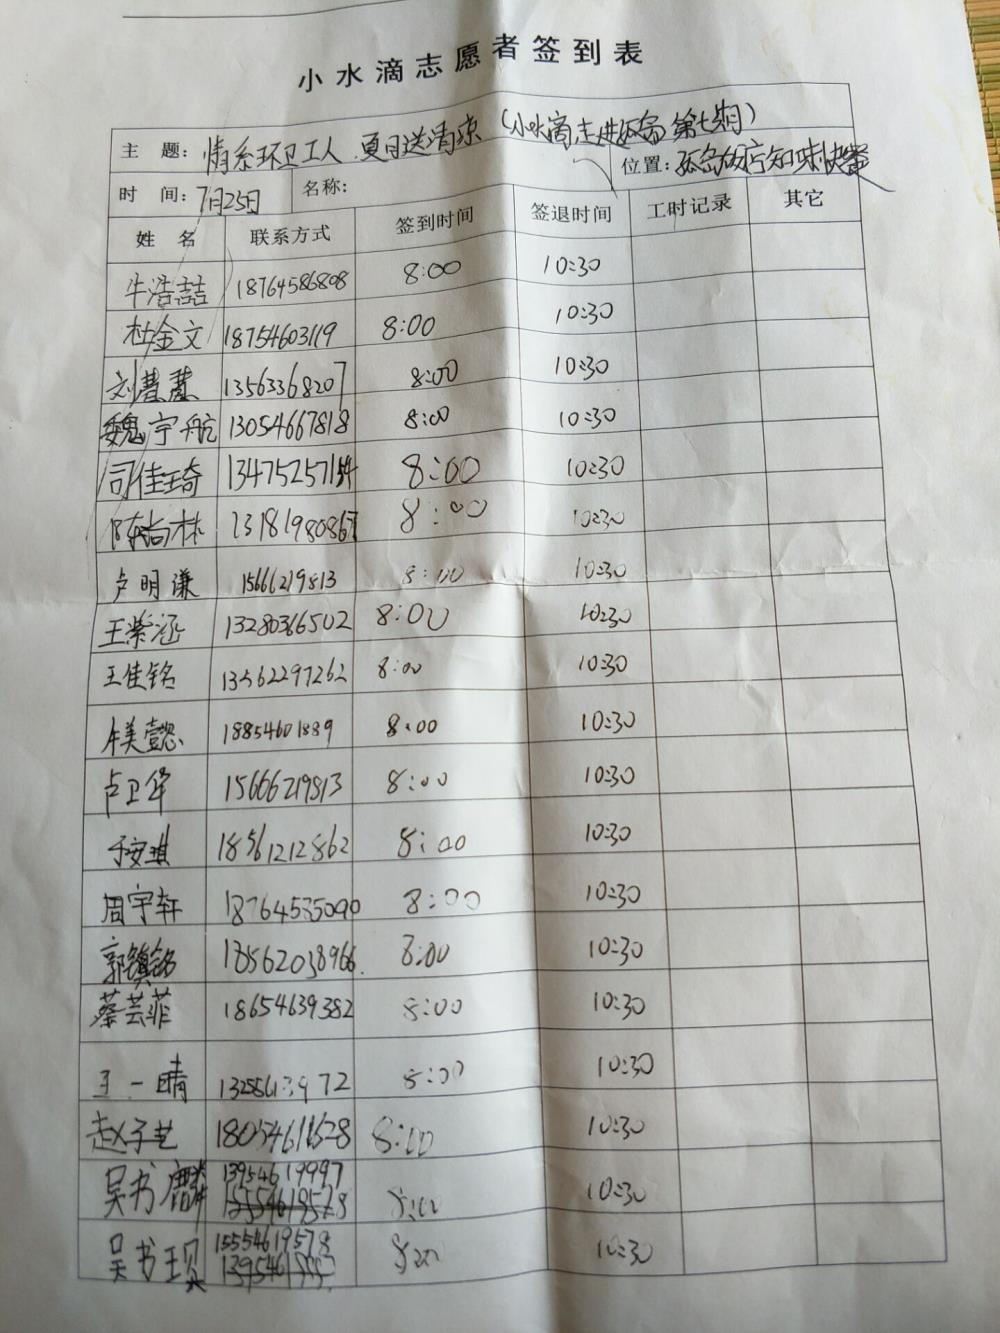 小水滴志愿者签到表
主 题: 情系环卫工人.夏日送清凉(小水滴走进孤岛 第七期)
时 间: 7月25日 名称: 位置: 孤岛饭店知味快餐
姓 名 联系方式 签到时间 签退时间 工时记录 其它
牛浩喆 18764586808 8:00 10:30
杜金文 18754603119 8:00 10:30
刘慧慧 13563368207 8:00 10:30
魏宇航 13054667818 8:00 10:30
司佳琦 13475257154 8:00 10:30
陈尚林 8:00 10:30
卢明谦 15666219813 8:00 10:30
王紫涵 13280366502 8:00 10:30
王佳铭 13562297262 8:00 10:30
美懿 18854601889 8:00 10:30
卢卫华 15666219813 8:00 10:30
于安琪 18561212862 8:00 10:30
周宇轩 18764535090 8:00 10:30
郭镇铭 18562038966 8:00 10:30
蔡芸菲 18654639382 8:00 10:30
王一晴 8:00 10:30
赵子艺 8:00 10:30
吴书麟 13954619997 8:00 10:30
吴书 15554619578 8:00 10:30